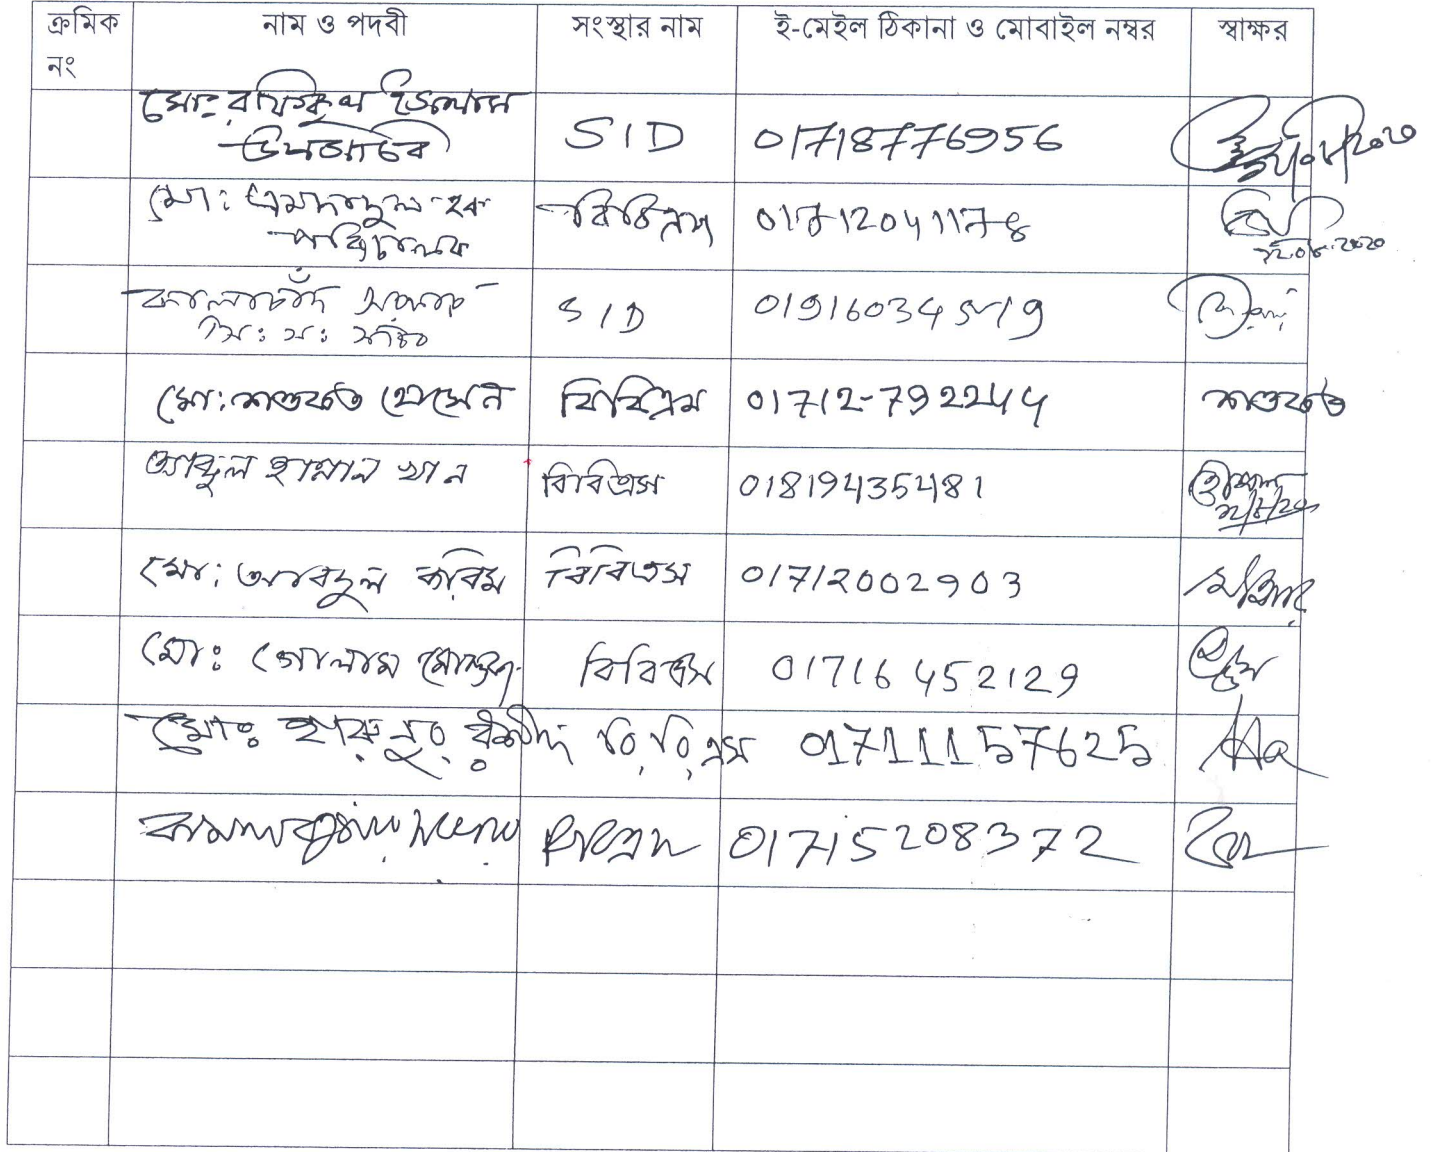 ক্রমিক নং নাম ও পদবী সংস্থার নাম ই-মেইল ঠিকানা ও মোবাইল নম্বর স্বাক্ষর
মোঃ রফিকুল ইসলাম
উপসচিব SID 01718776956
মো: এমদাদুল হক
পরিচালক বিবিএস 01712041178
কালাচাঁদ সরকার
সি: স: সচিব SID 01916034519
মো: শওকত হোসেন বিবিএস 01712-792244 শওকত
আব্দুল হান্নান খান বিবিএস 01819435481
মো: আবদুল করিম বিবিএস 01712002903
মো: গোলাম মোস্তফা বিবিএস 01716 452129
মোঃ হারুনুর রশীদ বি,বি,এস 01711157625
বিবিএস 01715208372